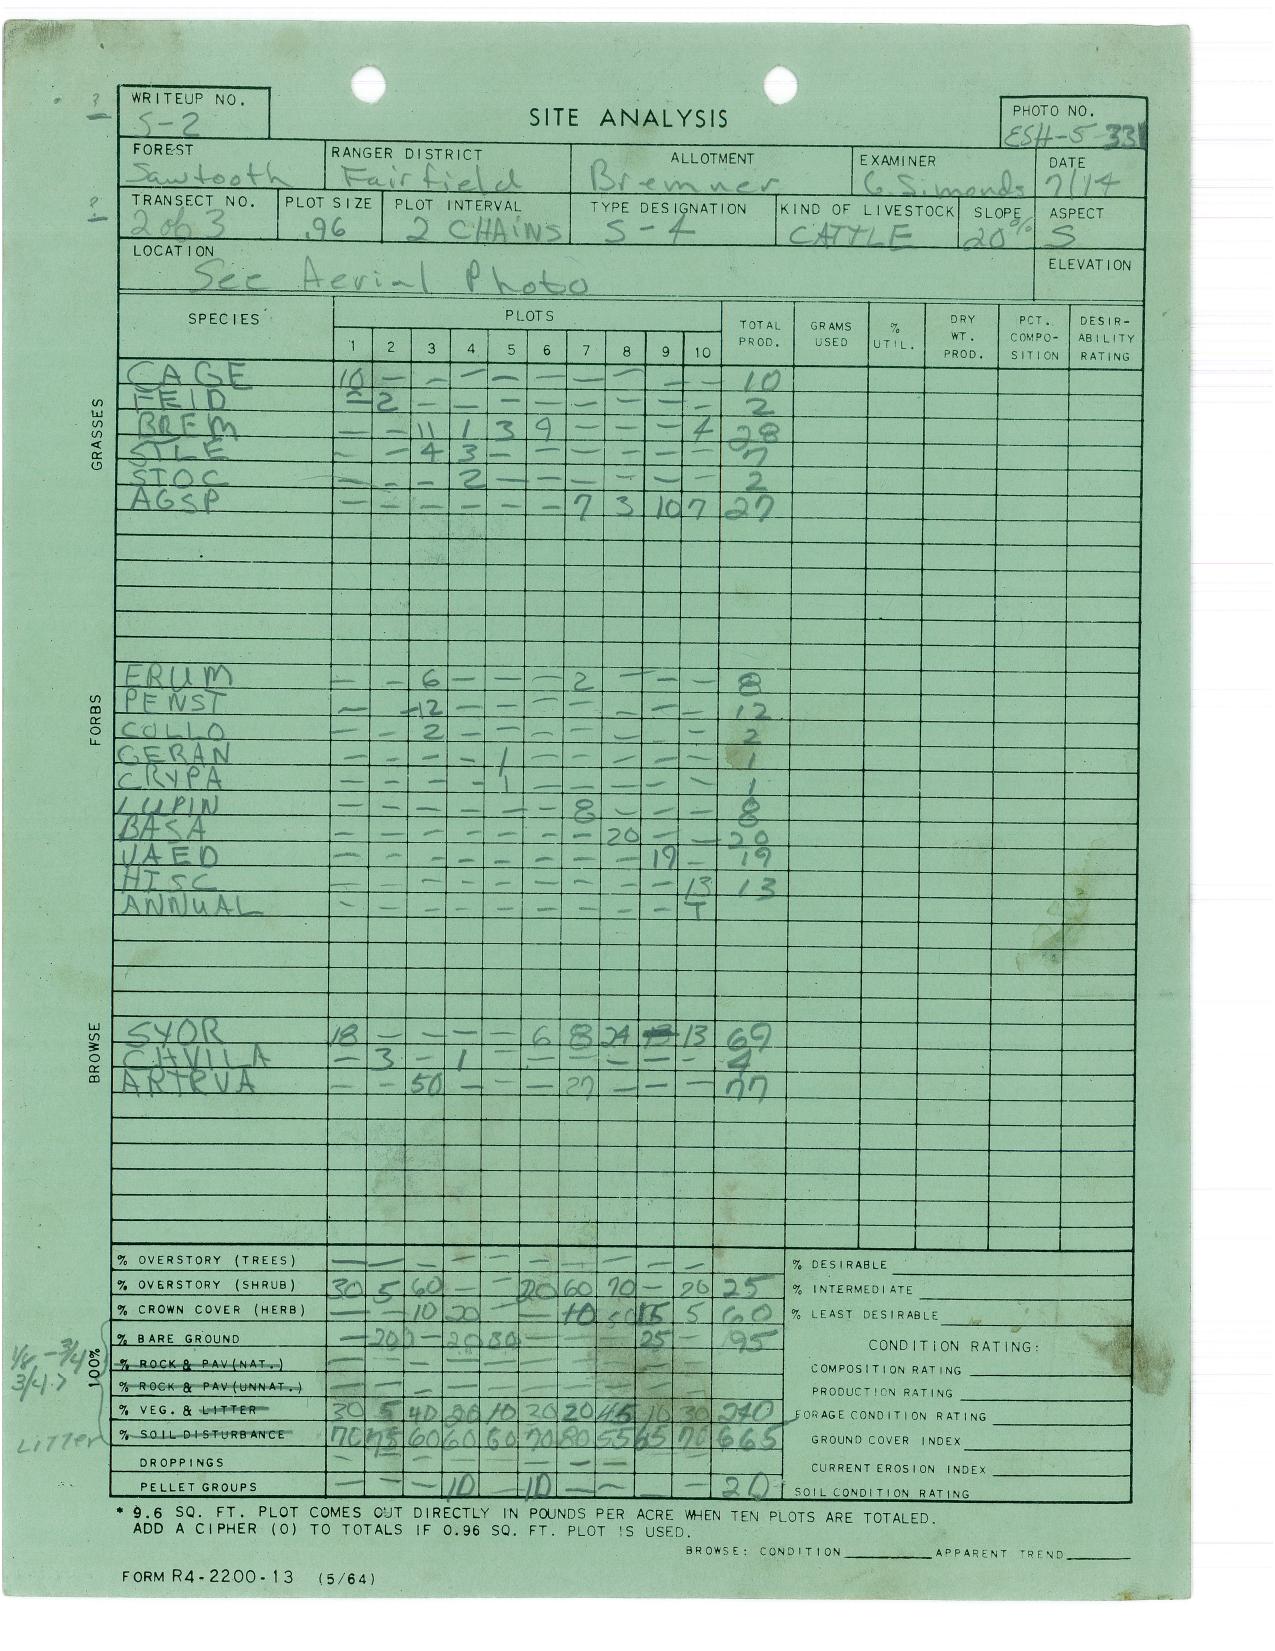 ?
WRITEUP NO.
S-2
SITE ANALYSIS
PHOTO NO.
ESH-5-331
FOREST
Sawtooth
RANGER DISTRICT
Fairfield
ALLOTMENT
Bremner
EXAMINER
G. Simonds
DATE
7/14
?
TRANSECT NO.
2 of 3
PLOT SIZE
.96
PLOT INTERVAL
2 CHAINS
TYPE DESIGNATION
S-4
KIND OF LIVESTOCK
CATTLE
SLOPE
20%
ASPECT
S
LOCATION
See Aerial Photo
ELEVATION
SPECIES PLOTS TOTAL PROD. GRAMS USED % UTIL. DRY WT. PROD. PCT. COMPO-SITION DESIR-ABILITY RATING
1 2 3 4 5 6 7 8 9 10
GRASSES
CAGE 10 — — — — — — — — — 10
FEID — 2 — — — — — — — — 2
BREM — — 11 1 3 9 — — — 4 28
STLE — — 4 3 — — — — — — 7
STOC — — — 2 — — — — — — 2
AGSP — — — — — — 7 3 10 7 27
FORBS
ERUM — — 6 — — — 2 — — — 8
PENST — — 12 — — — — — — — 12
COLLO — — 2 — — — — — — — 2
GERAN — — — — 1 — — — — — 1
CRYPA — — — — 1 — — — — — 1
LUPIN — — — — — — 8 — — — 8
BASA — — — — — — — 20 — — 20
VAED — — — — — — — — 19 — 19
HISC — — — — — — — — — 13 13
ANNUAL — — — — — — — — — T
BROWSE
SYOR 18 — — — — 6 8 24 13 69
CHVILA — 3 — 1 — — — — — — 4
ARTRVA — — 50 — — — 27 — — — 77
% OVERSTORY (TREES) — — — — — — — — — —
% OVERSTORY (SHRUB) 30 5 60 — — 20 60 70 — 20 25
% CROWN COVER (HERB) — — 10 20 — — 10 50 15 5 60
% BARE GROUND — 20 — 20 30 — — — 25 — 95
% ROCK & PAV (NAT.) — — — — — — — — — —
% ROCK & PAV (UNNAT.) — — — — — — — — — —
% VEG. & LITTER 30 5 40 20 10 30 20 45 10 30 240
% SOIL DISTURBANCE 70 75 60 60 60 70 80 55 65 70 665
DROPPINGS — — — — — — — —
PELLET GROUPS — — — 10 — 10 — — — — 20
100%
1/8 - 3/4
3/4 >
LITTER
% DESIRABLE
% INTERMEDIATE
% LEAST DESIRABLE
CONDITION RATING:
COMPOSITION RATING
PRODUCTION RATING
FORAGE CONDITION RATING
GROUND COVER INDEX
CURRENT EROSION INDEX
SOIL CONDITION RATING
* 9.6 SQ. FT. PLOT COMES OUT DIRECTLY IN POUNDS PER ACRE WHEN TEN PLOTS ARE TOTALED.
ADD A CIPHER (0) TO TOTALS IF 0.96 SQ. FT. PLOT IS USED.
BROWSE: CONDITION APPARENT TREND
FORM R4-2200-13 (5/64)